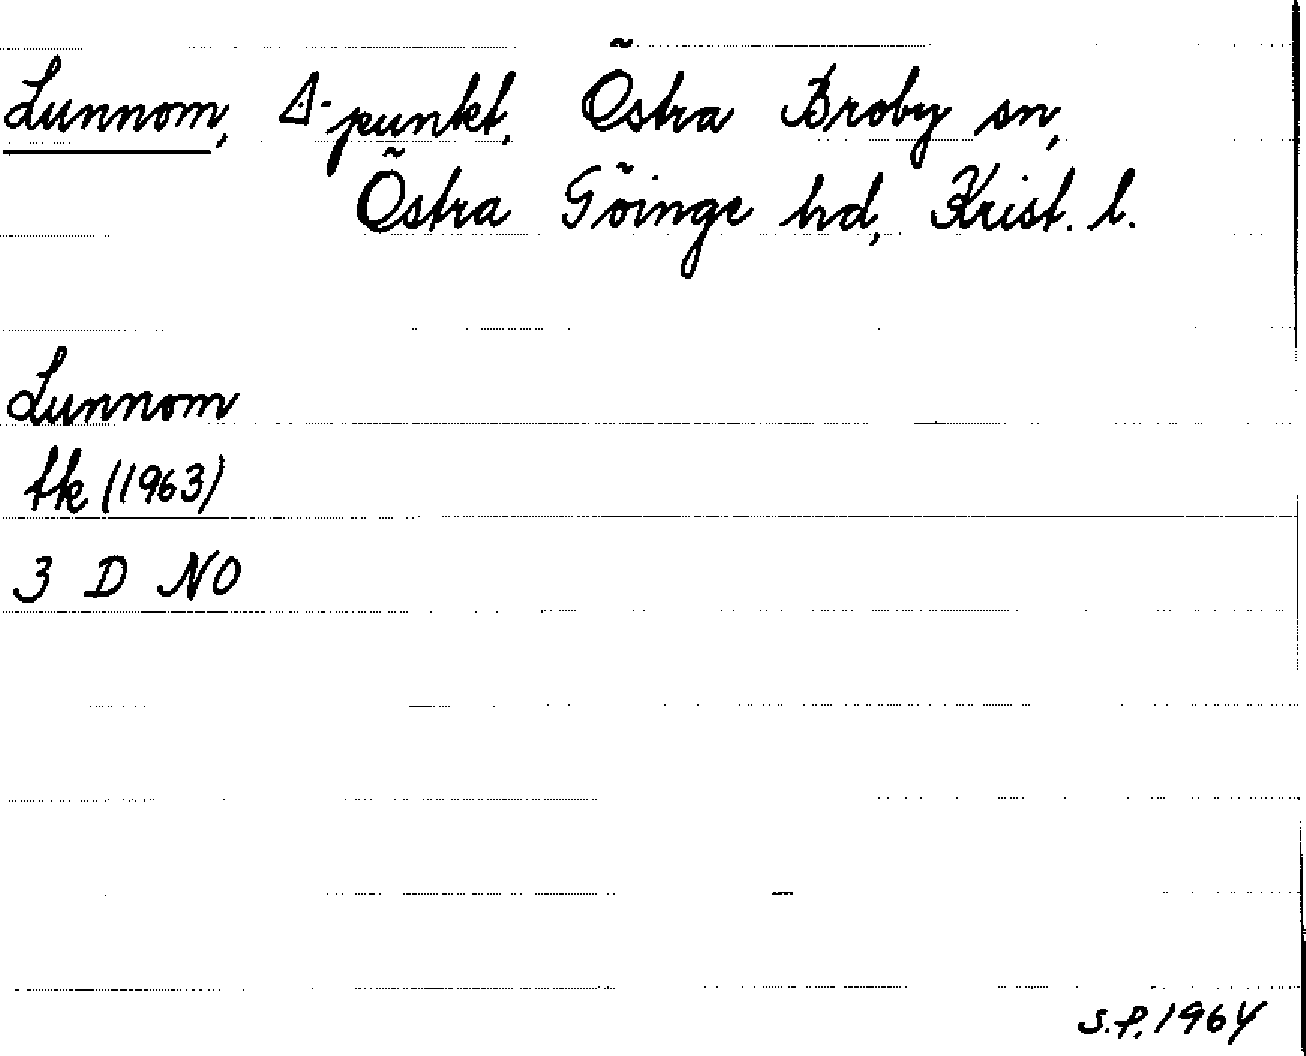 Lunnom, Δ-punkt, Östra Broby sn,
Östra Göinge hd, Krist. l.
Lunnom
tk (1963)
3 D NO
S.P. 1964